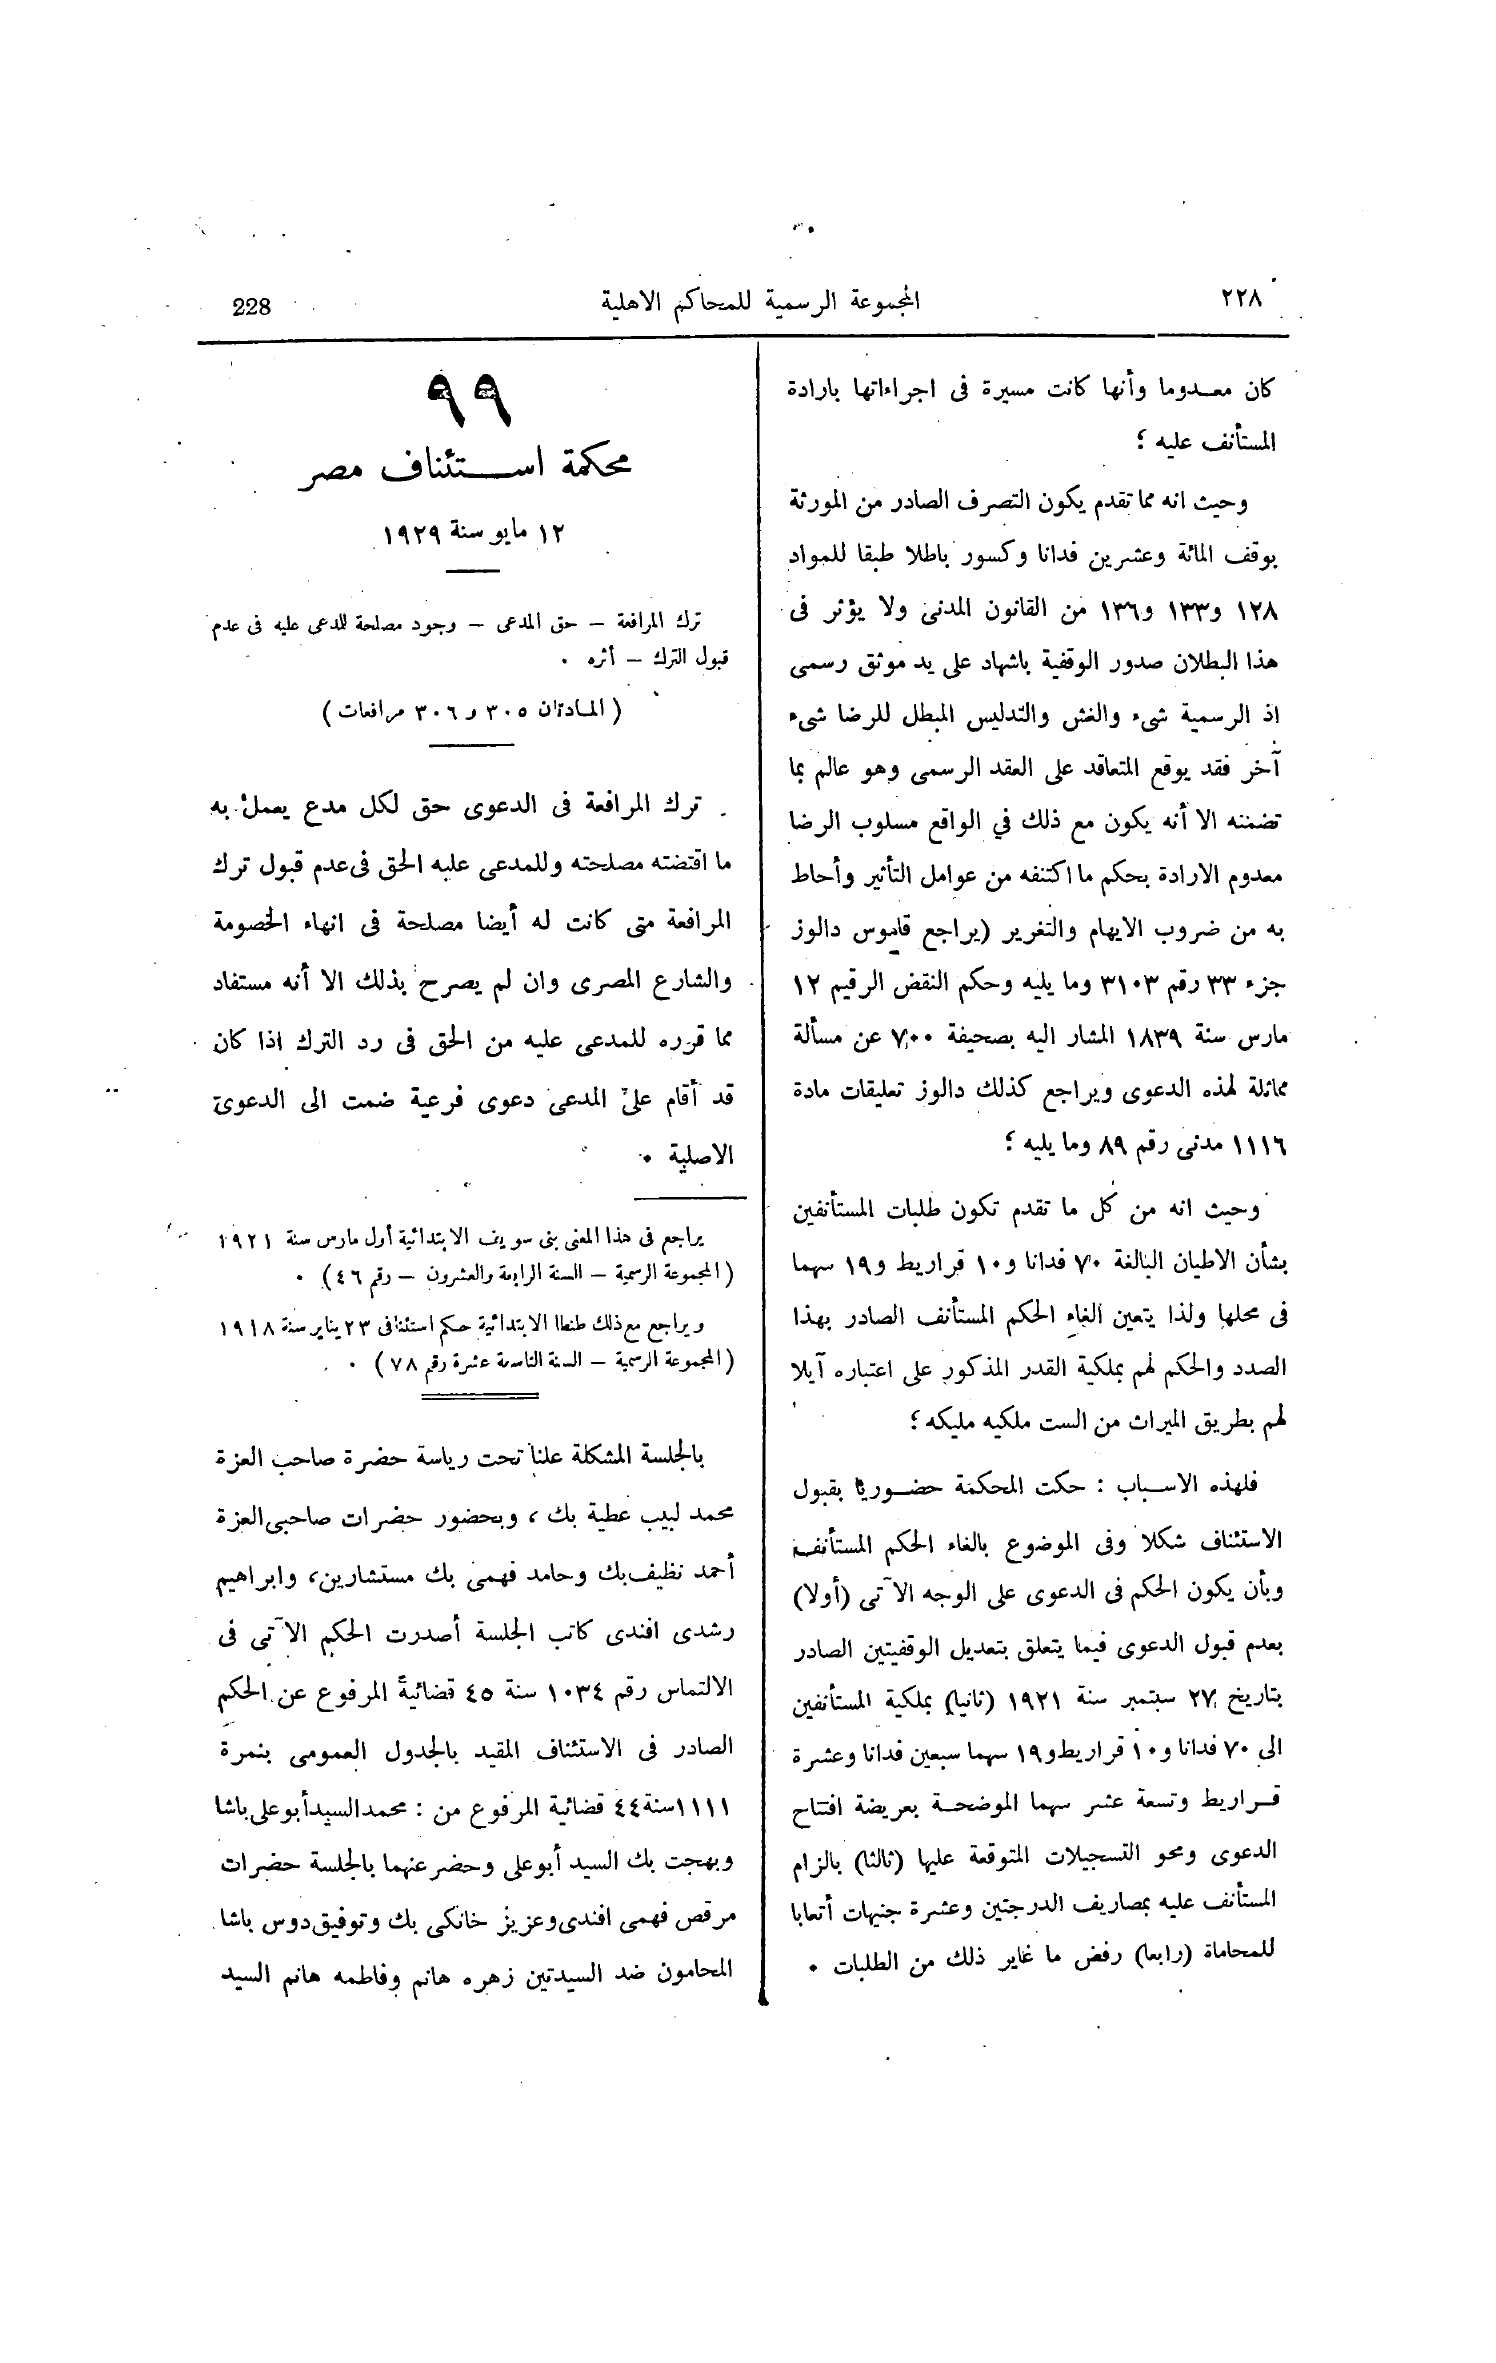 ٢٢٨
المجموعة الرسمية للمحاكم الاهلية
228
كان معدوما وأنها كانت مسيرة فى اجراءاتها بارادة
المستأنف عليه ؛
وحيث انه مما تقدم يكون التصرف الصادر من المورثة
بوقف المائة وعشرين فدانا وكسور باطلا طبقا للمواد
١٢٨ و١٣٣ و١٣٦ من القانون المدنى ولا يؤثر فى
هذا البطلان صدور الوقفية باشهاد على يد موثق رسمى
اذ الرسمية شىء والغش والتدليس المبطل للرضا شىء
آخر فقد يوقع المتعاقد على العقد الرسمى وهو عالم بما
تضمنه الا أنه يكون مع ذلك في الواقع مسلوب الرضا
معدوم الارادة بحكم ما اكتنفه من عوامل التأثير وأحاط
به من ضروب الايهام والتغرير (يراجع قاموس دالوز
جزء ٣٣ رقم ٣١٠٣ وما يليه وحكم النقض الرقيم ١٢
مارس سنة ١٨٣٩ المشار اليه بصحيفة ٧٠٠ عن مسألة
مماثلة لهذه الدعوى ويراجع كذلك دالوز تعليقات مادة
١١١٦ مدنى رقم ٨٩ وما يليه ؛
وحيث انه من كل ما تقدم تكون طلبات المستأنفين
بشأن الاطيان البالغة ٧٠ فدانا و١٠ قراريط و١٩ سهما
فى محلها ولذا يتعين الغاء الحكم المستأنف الصادر بهذا
الصدد والحكم لهم بملكية القدر المذكور على اعتباره آيلا
لهم بطريق الميراث من الست ملكيه مليكه ؛
فلهذه الاسباب : حكمت المحكمة حضوريا بقبول
الاستئناف شكلا وفى الموضوع بالغاء الحكم المستأنف
وبأن يكون الحكم فى الدعوى على الوجه الآتى (أولا)
بعدم قبول الدعوى فيما يتعلق بتعديل الوقفيتين الصادر
بتاريخ ٢٧ سبتمبر سنة ١٩٢١ (ثانيا) بملكية المستأنفين
الى ٧٠ فدانا و١٠ قراريط و١٩ سهما سبعين فدانا وعشرة
قراريط وتسعة عشر سهما الموضحة بعريضة افتتاح
الدعوى ومحو التسجيلات المتوقعة عليها (ثالثا) بالزام
المستأنف عليه بمصاريف الدرجتين وعشرة جنيهات أتعابا
للمحاماة (رابعا) رفض ما غاير ذلك من الطلبات .
٩٩
محكمة استئناف مصر
١٢ مايو سنة ١٩٢٩
ترك المرافعة – حق المدعى – وجود مصلحة للمدعى عليه فى عدم
قبول الترك – أثره .
( المادتان ٣٠٥ و ٣٠٦ مرافعات )
ترك المرافعة فى الدعوى حق لكل مدع يعمل به
ما اقتضته مصلحته وللمدعى عليه الحق فى عدم قبول ترك
المرافعة متى كانت له أيضا مصلحة فى انهاء الخصومة
والشارع المصرى وان لم يصرح بذلك الا أنه مستفاد
مما قرره للمدعى عليه من الحق فى رد الترك اذا كان
قد أقام على المدعى دعوى فرعية ضمت الى الدعوى
الاصلية .
يراجع فى هذا المعنى بنى سويف الابتدائية أول مارس سنة ١٩٢١
( المجموعة الرسمية – السنة الرابعة والعشرون – رقم ٤٦ ) .
ويراجع مع ذلك طنطا الابتدائية حكم استئنافى ٢٣ يناير سنة ١٩١٨
( المجموعة الرسمية – السنة التاسعة عشرة رقم ٧٨ ) .
بالجلسة المشكلة علنا تحت رياسة حضرة صاحب العزة
محمد لبيب عطية بك ، وبحضور حضرات صاحبى العزة
أحمد نظيف بك وحامد فهمى بك مستشارين، وابراهيم
رشدى افندى كاتب الجلسة أصدرت الحكم الآتى فى
الالتماس رقم ١٠٣٤ سنة ٤٥ قضائية المرفوع عن الحكم
الصادر فى الاستئناف المقيد بالجدول العمومى بنمرة
١١١١ سنة ٤٤ قضائية المرفوع من : محمد السيد أبو على باشا
وبهجت بك السيد أبو على وحضر عنهما بالجلسة حضرات
مرقص فهمى افندى وعزيز خانكى بك وتوفيق دوس باشا
المحامون ضد السيدتين زهره هانم وفاطمه هانم السيد